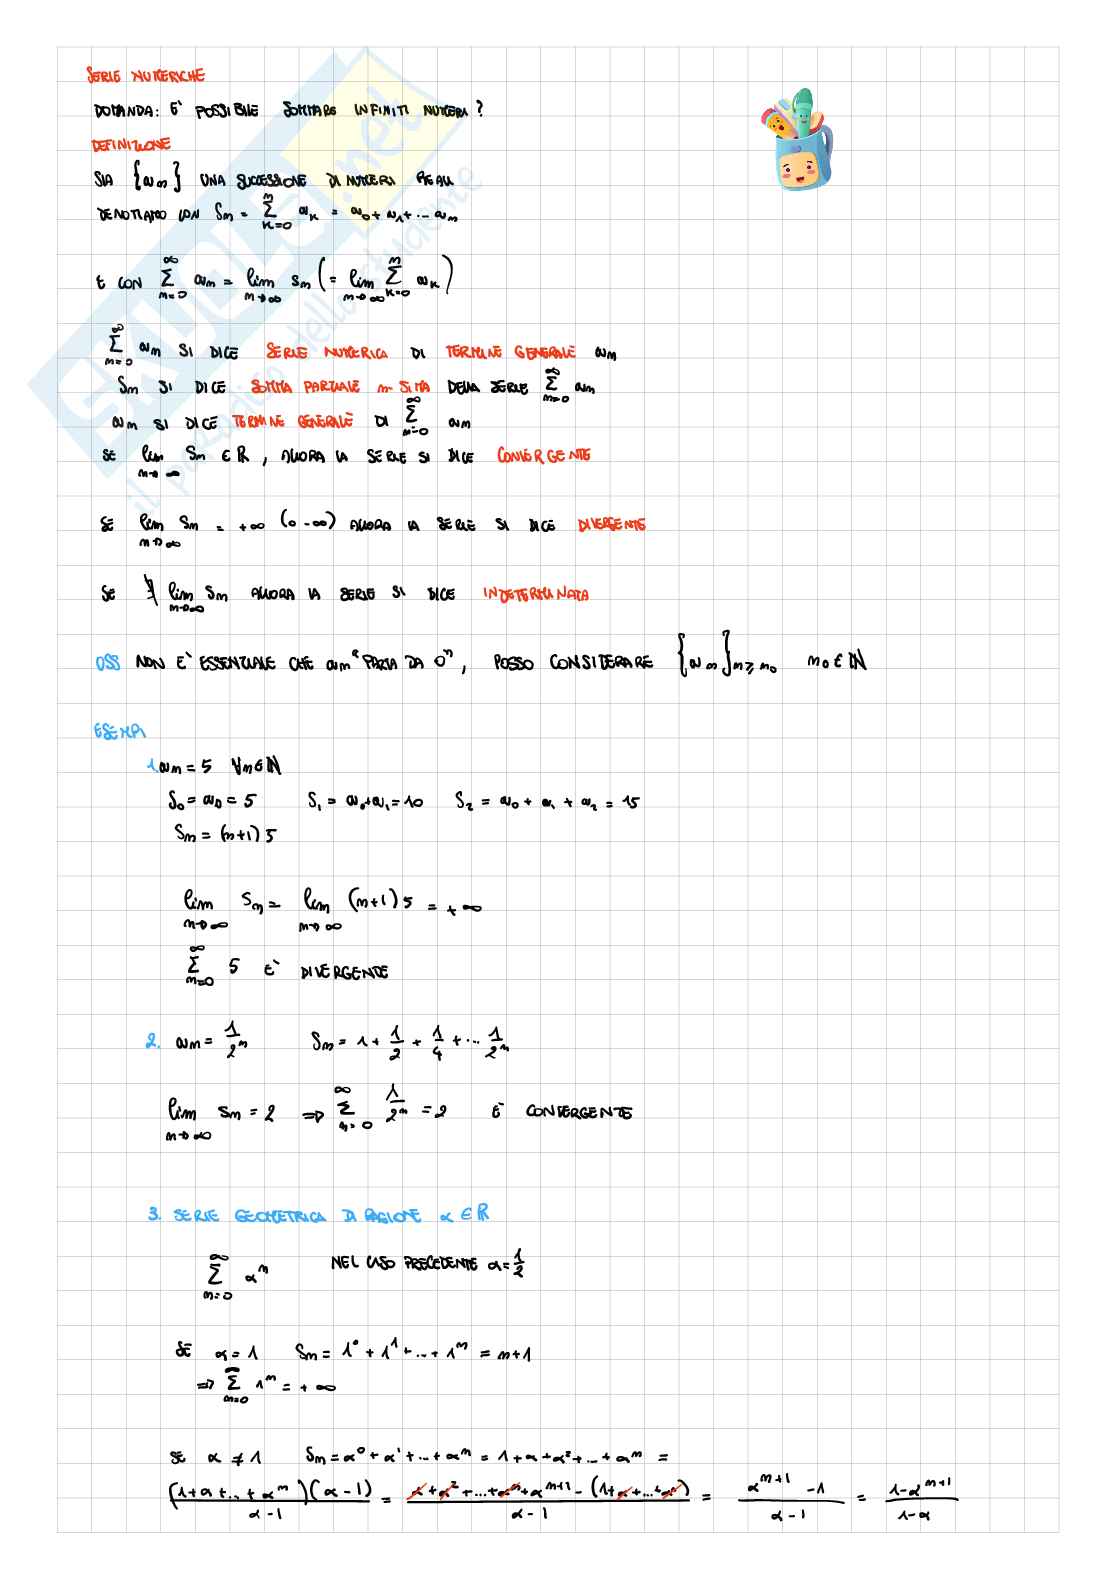 SERIE NUMERICHE
DOMANDA: E' POSSIBILE SOMMARE INFINITI NUMERI?
DEFINIZIONE
SIA {an} UNA SUCCESSIONE DI NUMERI REALI
DENOTIAMO CON Sn = ∑_{K=0}^{n} a_K = a0 + a1 + ... an
E CON ∑_{n=0}^{∞} an = lim_{n→∞} Sn (= lim_{n→∞} ∑_{K=0}^{n} a_K)
∑_{n=0}^{∞} an SI DICE SERIE NUMERICA DI TERMINE GENERALE an
Sn SI DICE SOMMA PARZIALE n-SIMA DELLA SERIE ∑_{n=0}^{∞} an
an SI DICE TERMINE GENERALE DI ∑_{n=0}^{∞} an
SE lim_{n→∞} Sn ∈ R, ALLORA LA SERIE SI DICE CONVERGENTE
SE lim_{n→∞} Sn = +∞ (O -∞) ALLORA LA SERIE SI DICE DIVERGENTE
SE ∄ lim_{n→∞} Sn ALLORA LA SERIE SI DICE INDETERMINATA
OSS NON E' ESSENZIALE CHE an "PARTA DA 0", POSSO CONSIDERARE {an}_{n≥n0} n0 ∈ N
ESEMPI
1. an = 5 ∀n∈N
S0 = a0 = 5 S1 = a0+a1 = 10 S2 = a0 + a1 + a2 = 15
Sn = (n+1) 5
lim_{n→∞} Sn = lim_{n→∞} (n+1) 5 = +∞
∑_{n=0}^{∞} 5 E' DIVERGENTE
2. an = 1/2^n Sn = 1 + 1/2 + 1/4 + ... 1/2^n
lim_{n→∞} Sn = 2 ⇒ ∑_{n=0}^{∞} 1/2^n = 2 E' CONVERGENTE
3. SERIE GEOMETRICA DI RAGIONE α ∈ R
∑_{n=0}^{∞} α^n NEL CASO PRECEDENTE α = 1/2
SE α = 1 Sn = 1^0 + 1^1 + ... + 1^n = n+1
⇒ ∑_{n=0}^{∞} 1^n = +∞
SE α ≠ 1 Sn = α^0 + α^1 + ... + α^n = 1 + α + α^2 + ... + α^n =
(1+α+...+α^n)(α-1)/(α-1) = (α+α^2+...+α^n+α^{n+1} - (1+α+...+α^n))/(α-1) = (α^{n+1} - 1)/(α-1) = (1-α^{n+1})/(1-α)
SKUOLA.net
il paradiso dello studente